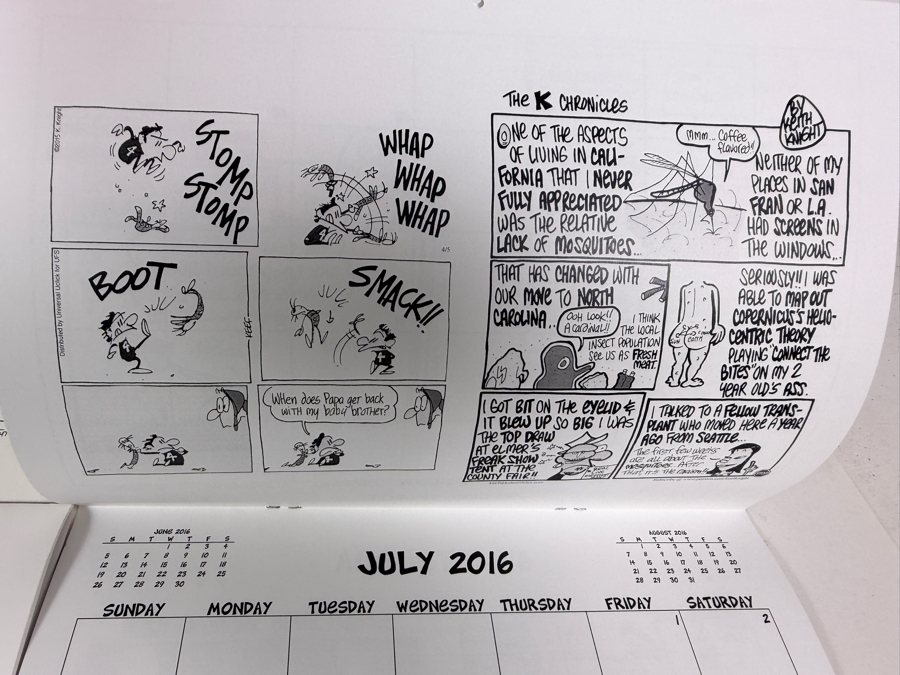 ©2015 K. Knight
STOMP
STOMP
WHAP
WHAP
WHAP
4/5
Distributed by Universal Uclick for UFS
BOOT
KEEF
SMACK!!
When does Papa get back
with my baby brother?
THE K CHRONICLES
BY
KEITH
KNIGHT
ONE OF THE ASPECTS
OF LIVING IN CALI-
FORNIA THAT I NEVER
FULLY APPRECIATED
WAS THE RELATIVE
LACK OF MOSQUITOES...
MMM... COFFEE
flavored!!
NEITHER OF MY
PLACES IN SAN
FRAN OR L.A.
HAD SCREENS IN
THE WINDOWS...
THAT HAS CHANGED WITH
OUR MOVE TO NORTH
CAROLINA.
OOH LOOK!!
A CARDINAL!!
I THINK
THE LOCAL
INSECT POPULATION
SEE US AS FRESH
MEAT.
SERIOUSLY!! I WAS
ABLE TO MAP OUT
COPERNICUS'S HELIO-
CENTRIC THEORY
PLAYING "CONNECT THE
BITES" ON MY 2
YEAR OLD'S ASS.
SUN
EARTH
I GOT BIT ON THE EYELID &
IT BLEW UP SO BIG I WAS
THE TOP DRAW
AT ELMER'S
FREAK SHOW
TENT AT THE
COUNTY FAIR!!
I TALKED TO A FELLOW TRANS-
PLANT WHO MOVED HERE A YEAR
AGO FROM SEATTLE...
THE FIRST FEW WEEKS
ARE ALL ABOUT THE
MOSQUITOES. AFTER
THAT IT'S THE
JUNE 2016
S M T W T F S
1 2 3 4
5 6 7 8 9 10 11
12 13 14 15 16 17 18
19 20 21 22 23 24 25
26 27 28 29 30
JULY 2016
AUGUST 2016
S M T W T F S
1 2 3 4 5 6
7 8 9 10 11 12 13
14 15 16 17 18 19 20
21 22 23 24 25 26 27
28 29 30 31
SUNDAY MONDAY TUESDAY WEDNESDAY THURSDAY FRIDAY SATURDAY
1 2